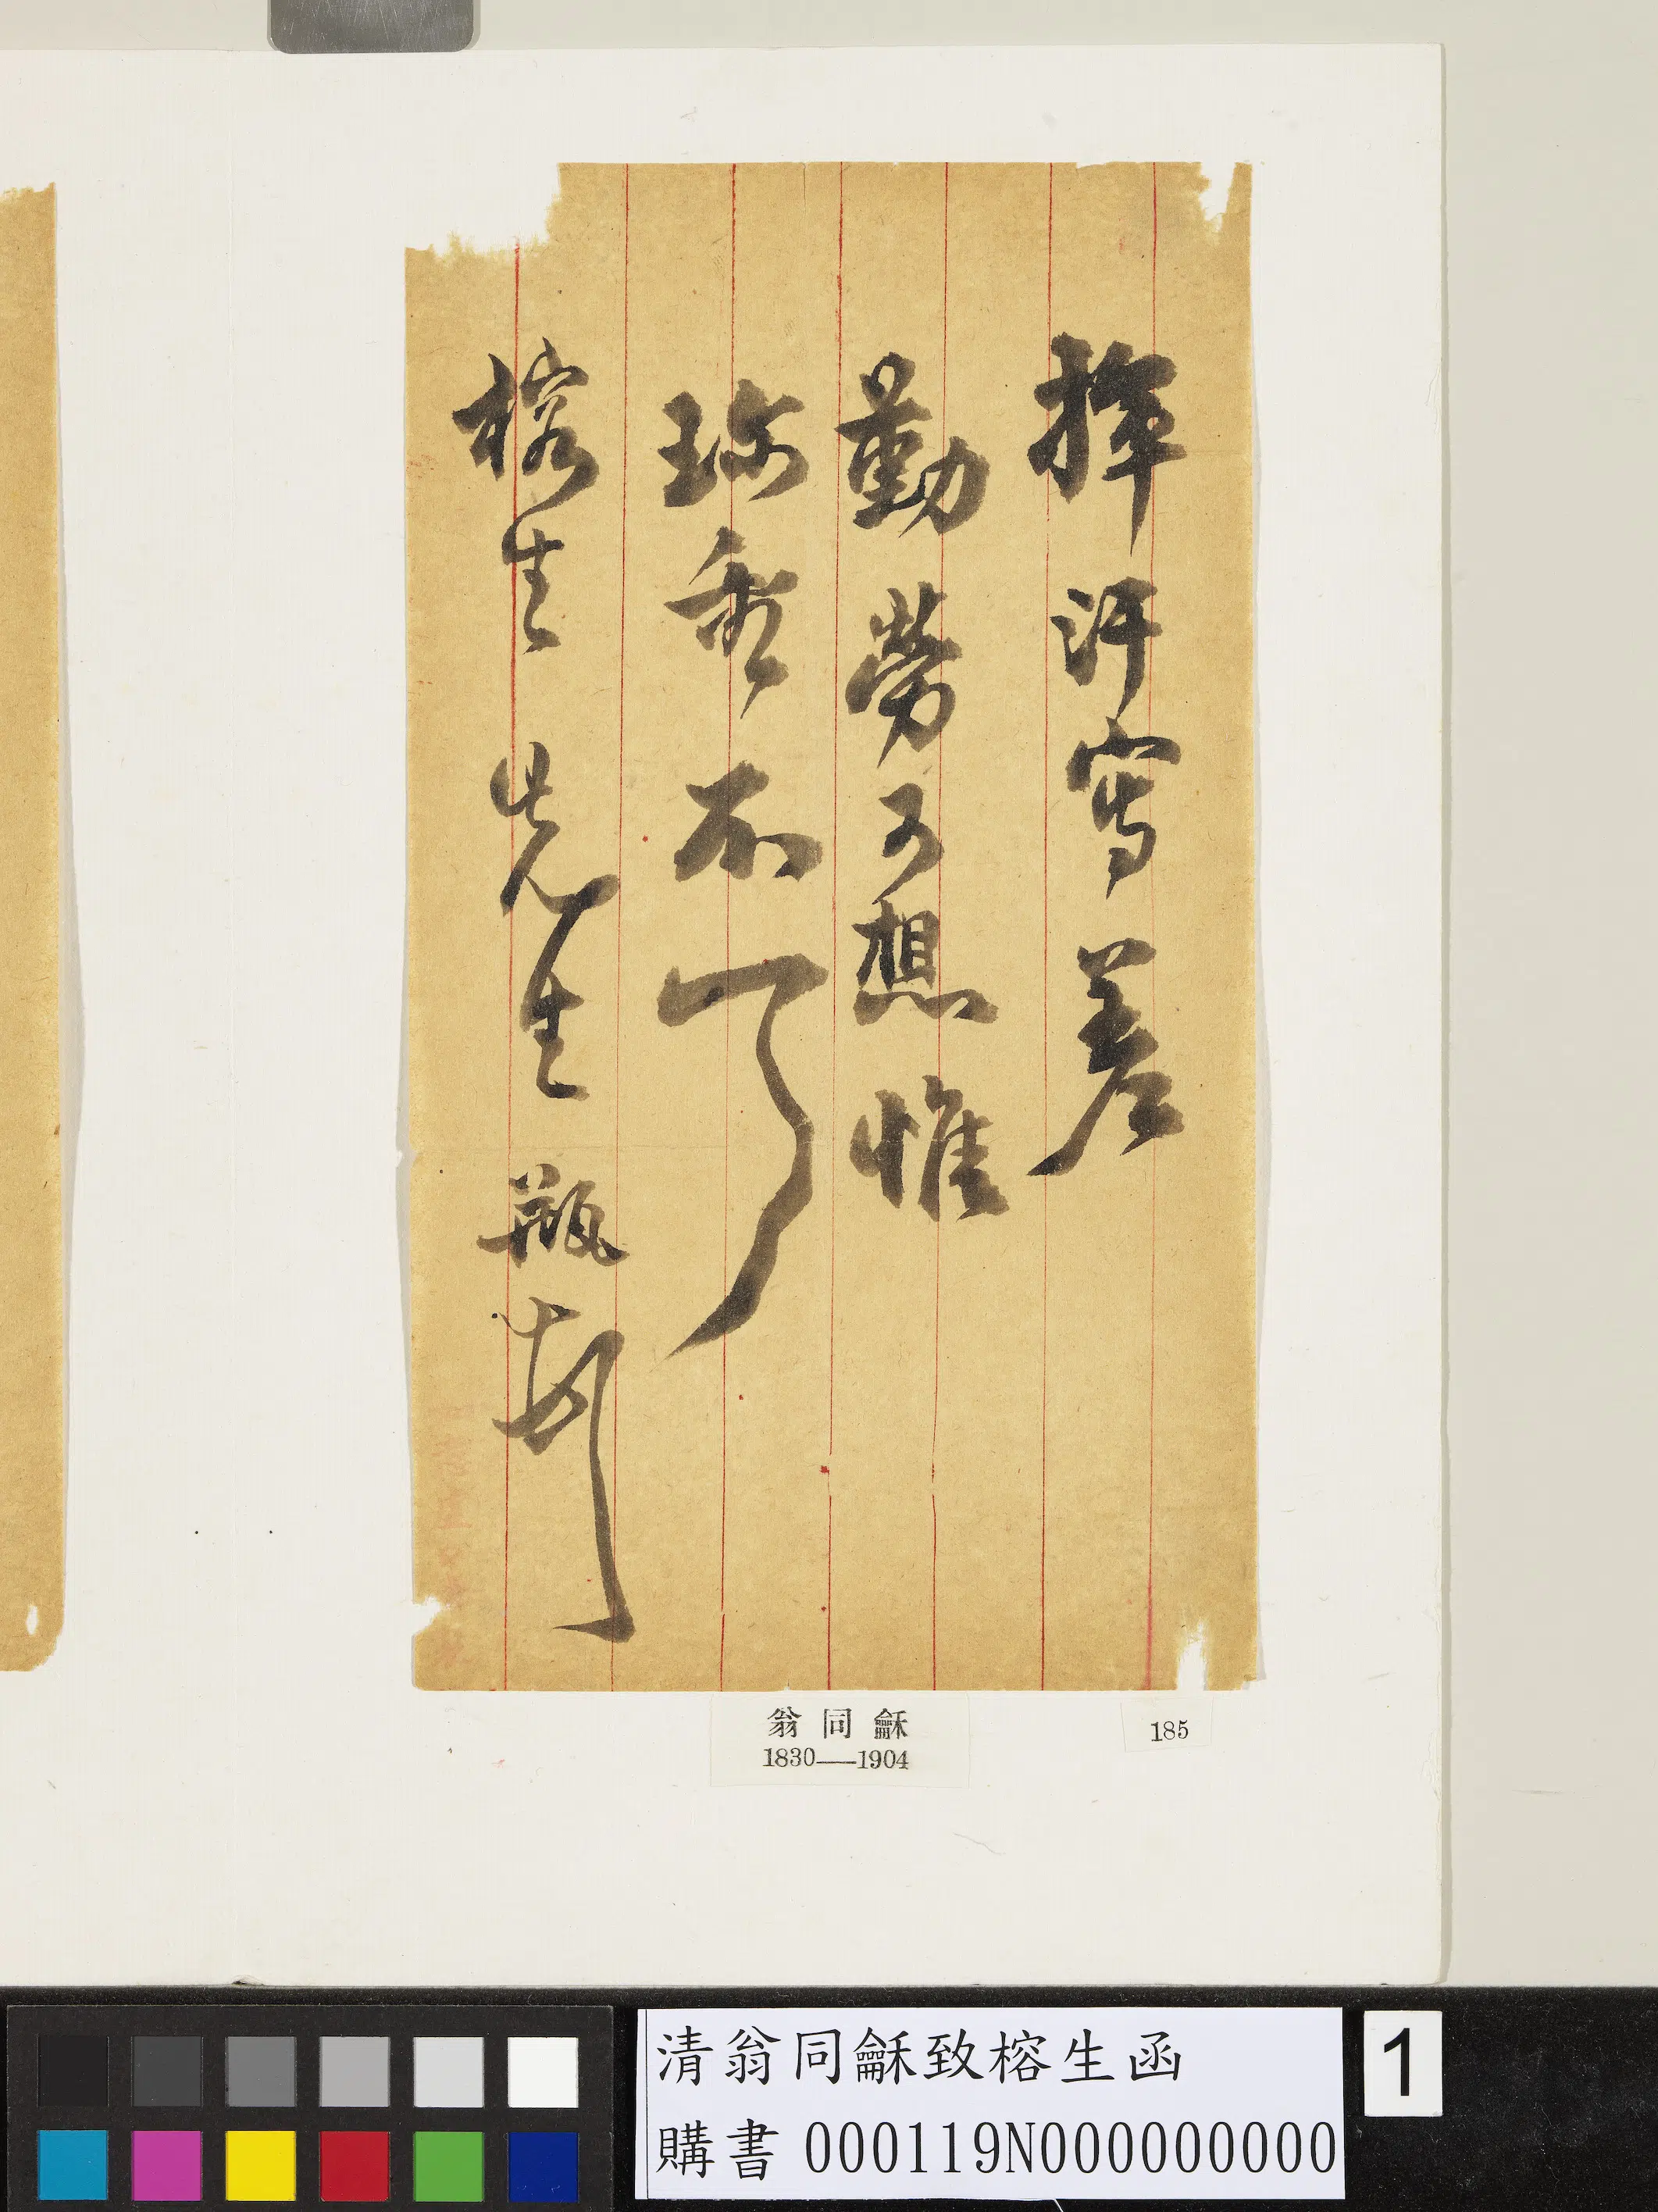 揮汗寫差
勤勞可想惟
珍重不
榕生先生 瓶
翁同龢
1830—1904
185
清翁同龢致榕生函
購書 000119N000000000
1